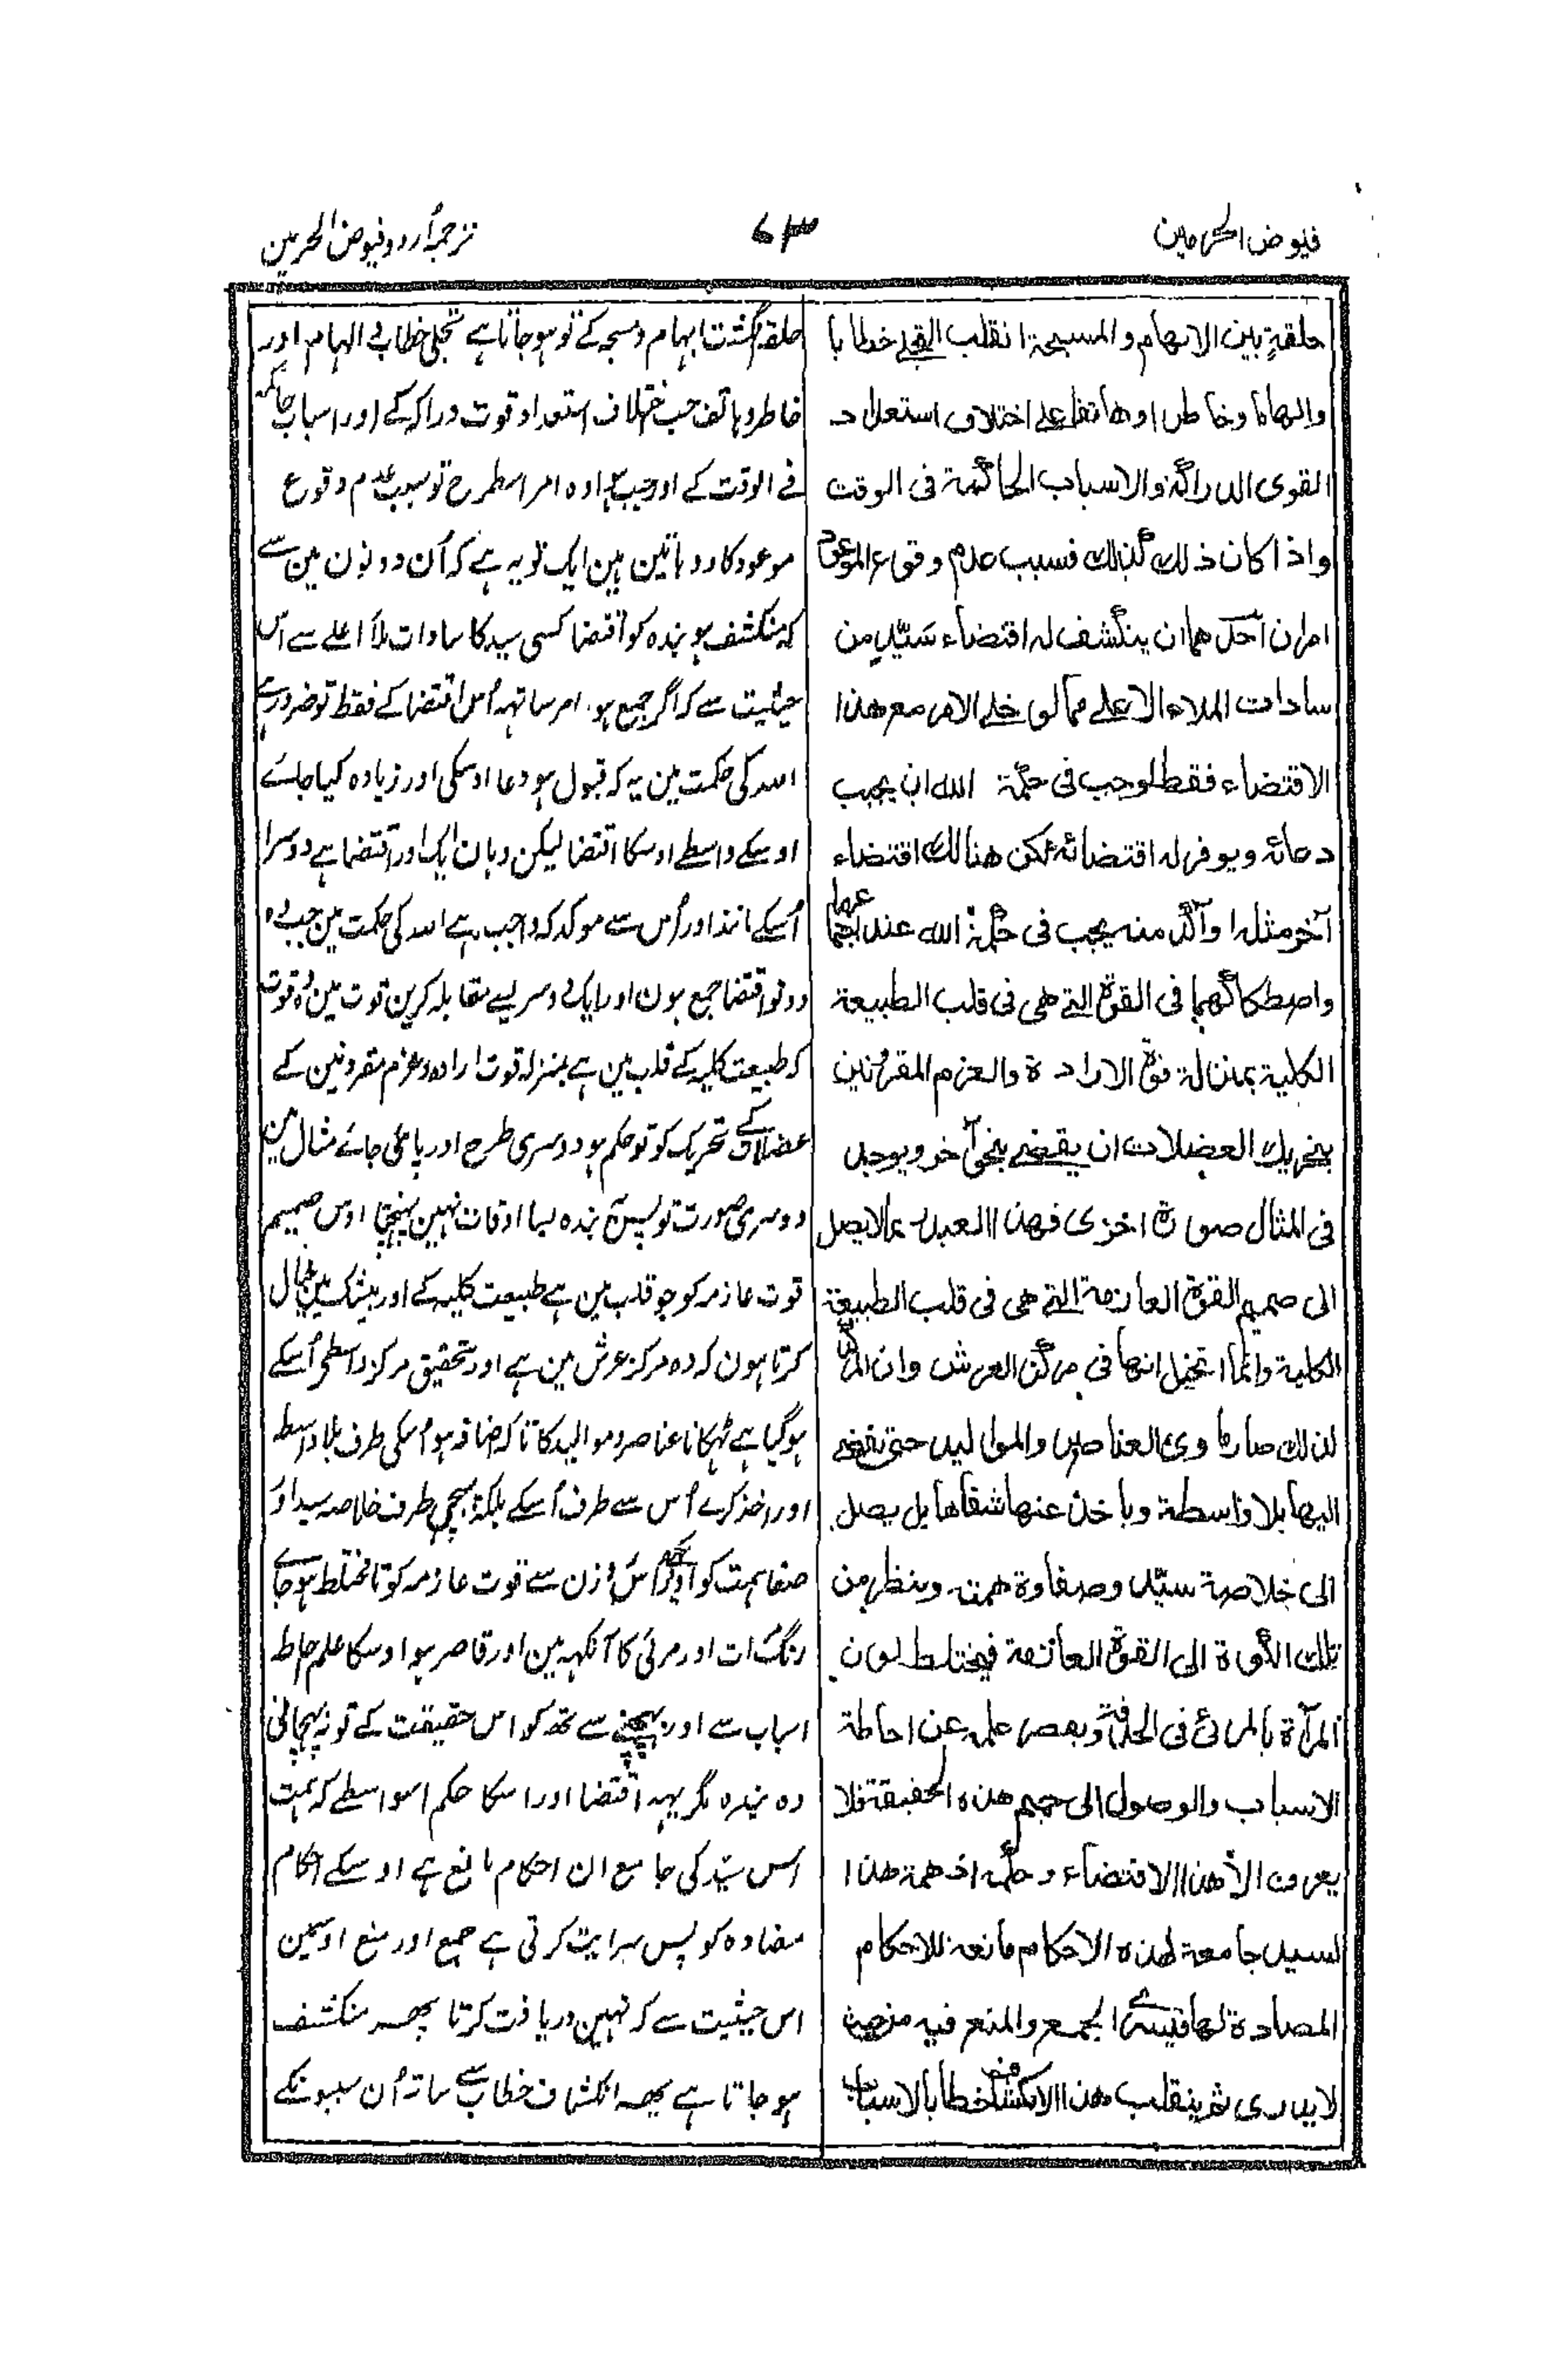 فیوض الحرمین
۶۳
ترجمۂ اردو فیوض الحرمین
حلقةٍ بین الابهام والمسبحة انقلب التجلے خطابا
والهاما وخاطرا وهاتفا علے اختلاف استعداد
القوی الدراکة والاسباب الحاکمة فی الوقت
واذا کان ذلك کذلك فسبب عدم وقوع الموعود
امران احدهما ان ینکشف له اقتضاء سَیّدٍ من
سادات الملاء الاعلے مما لو خلے الامر مع هذا
الاقتضاء فقط لوجب فی حکمة الله ان یجیب
دعائه ویوفر له اقتضائه لکن هنالك اقتضاء
آخر مثله او آکد منه یجب فی حکمة الله عند اجتماعهما
واصطکاکهما فی القوة التے هی فی قلب الطبیعة
الکلیة بمنزلة قوة الارادة والعزم المقرونین
بتحریك العضلات ان یقضے بنحو آخر ویوجد
فی المثال صورة اخری فهذا العبد ربما لا یصل
الی صمیم القوة العازمة التے هی فی قلب الطبیعة
الکلیة وانما اتخیل انها فی مرکز العرش وان المرکز
لذلك صار ماوی العناصر والموالید حتی تفضے
الیها بلا واسطة ویاخذ عنها شفاها بل یصل
الی خلاصة سیّد وصفاوة همته وینظر من
تلك الکوة الی القوة العازمة فیختلط لون
المرآة بالمرئی فی الحدقة ویعصر علمه عن احاطة
الاسباب والوصول الی صمیم هذه الحقیقة فلا
یعرف الا هذا الاقتضاء وحکمه اذ همة هذا
السید جامعة لهذه الاحکام مانعة للاحکام
المضادة لها فیسرے الجمع والمنع فیه من حیث
لا یدری ثم ینقلب هذا الانکشاف خطابا بالاسباب
حلقہ انگشت ابہام و مسبحہ کے تو ہو جاتا ہے تجلی خطاب یا الہام اور
خاطر و ہاتف حسب اختلاف استعداد قوت دراکہ کے اور اسباب حاکمہ
فی الوقت کے اور جب ہوا وہ امر اسطرح تو سبب عدم وقوع
موعود کا دو باتین ہین ایک تو یہ ہے کہ اُن دونون مین سے
کہ منکشف ہو بندہ کو اقتضا کسی سید کا سادات ملأ اعلے سے اس
حیثیت سے کہ اگر جمع ہو امر ساتھہ اُس اقتضا کے فقط تو ضرور ہے
اللہ کی حکمت مین یہ کہ قبول ہو دعا اوسکی اور زیادہ کیا جائے
اوسکے واسطے اوسکا اقتضا لیکن وہان ایک اور اقتضا ہے دوسرا
اُسکے مانند اور اُس سے موکد کہ واجب ہے اللہ کی حکمت مین جب یہ
دونو اقتضا جمع ہون اور ایک دوسرے سے مقابلہ کرین قوت مین وہ قوت
کہ طبیعت کلیہ کے قلب مین ہے بمنزلہ قوت ارادہ و عزم مقرونین کے
عضلات کے تحریک کو تو حکم ہو دوسری طرح اور پائی جائے مثال مین
دوسری صورت تو پس یہ بندہ بسا اوقات نہین پہنچتا اوس صمیم
قوت عازمہ کو جو قلب مین ہے طبیعت کلیہ کے اور بیشک مین خیال
کرتا ہون کہ وہ مرکز عرش مین ہے اور تحقیق مرکز واسطے اُسکے
ہو گیا ہے ٹھکانا عناصر و موالید کا تاکہ اضافہ ہو اُسکی طرف بلا واسطہ
اور اخذ کرے اُس سے طرف اُسکے بلکہ پہنچے طرف خلاصہ سید اور
صفا ہمت کو اور دیکھے اس روزن سے قوت عازمہ کو تا مختلط ہو جائے
رنگ مرآت اور مرئی کا آنکہہ مین اور قاصر ہو اوسکا علم احاطہ
اسباب سے اور پہنچنے سے تھہ کو اس حقیقت کے تو نہ پہچانی
وہ بندہ مگر یہہ اقتضا اور اسکا حکم اسواسطے کہ ہمت
اس سیّد کی جامع ان احکام مانع ہے اوسکے احکام
مضادہ کو پس سرایت کرتی ہے جمع اور منع اوسمین
اس حیثیت سے کہ نہین دریافت کرتا پھر منکشف
ہو جاتا ہے یھہ انکشاف خطاب سے ساتہ اُن سببونکے